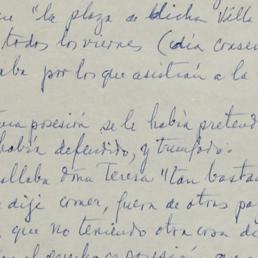 "la plaza de dicha Villa
todos los viernes (día conser
aba por los que asistían a la
una posesión se le había pretend
había defendido, y triunfado.
allaba doña Teresa "tan bastan
dije comer, fuera de otros pa
que no teniendo otra cosa di